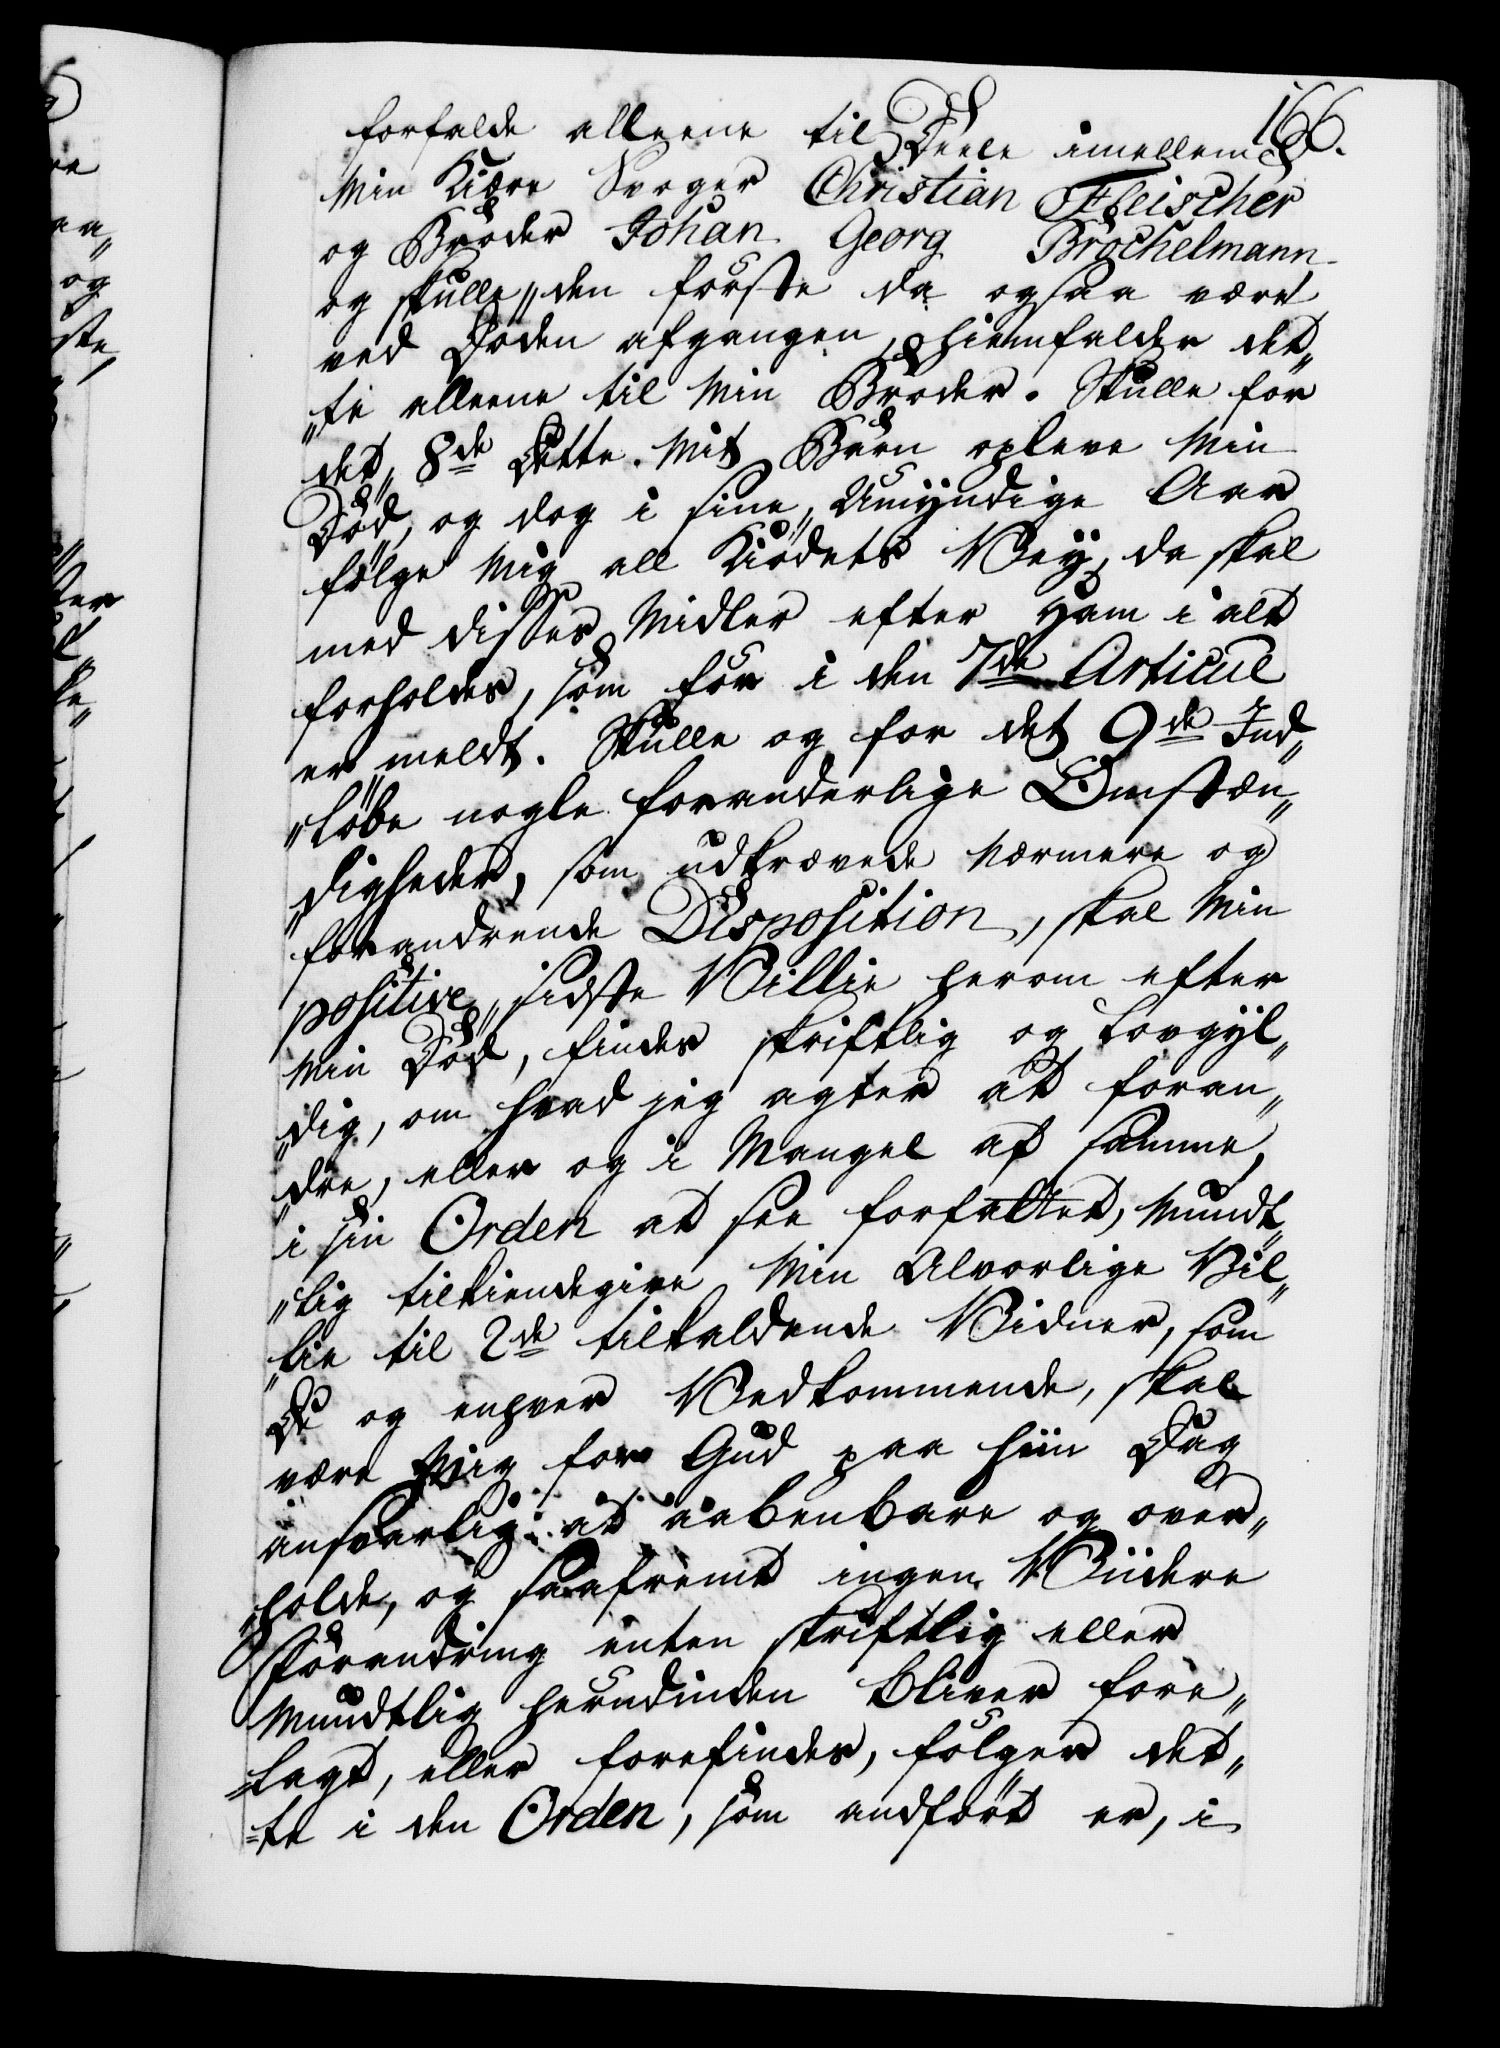 166.
forfalde alleene til Deele imellem
Min Kiære Svoger Christian Fleischer
og Broder Johan Georg Brøchelmann
og skulle den første da ogsaa være
ved Døden afgangen, hiemfalder det„
„te alleene til Min Broder. Skulle for
det 8de Dette Mit Barn opleve Min
Død, og dog i sine Umÿndige Aar
følge Mig all Kiødets Veÿ, da skal
med disses Midler efter ham i alt
forholdes, som før i den 7de Articul
er meldt. Skulle og for det 9de Ind„
„løbe nogle foranderlige Omstæn„
„digheder, som udkrævede nærmere og
forandrende Disposition, skal Min
positive sidste Villie herom efter
Min Død, findes skriftlig og Lovgÿl„
„dig, om hvad jeg agter at foran„
„dre, eller og i Mangel af samme,
i sin Orden at see forfattet, Mundt„
„lig tilkiendegive Min Alvorlige Vil„
„lie til 2de tilkaldende Vidner, som
De og enhver Vedkommende, skal
være Mig for Gud paa hiin Dag
ansvarlig at aabenbare og over„
„holde, og saafremt ingen Viidere
Forandring enten skriftlig eller
Mundtlig herudinden bliver fore„
„lagt, eller forefindes, følger det„
„te i den Orden, som andført er, i